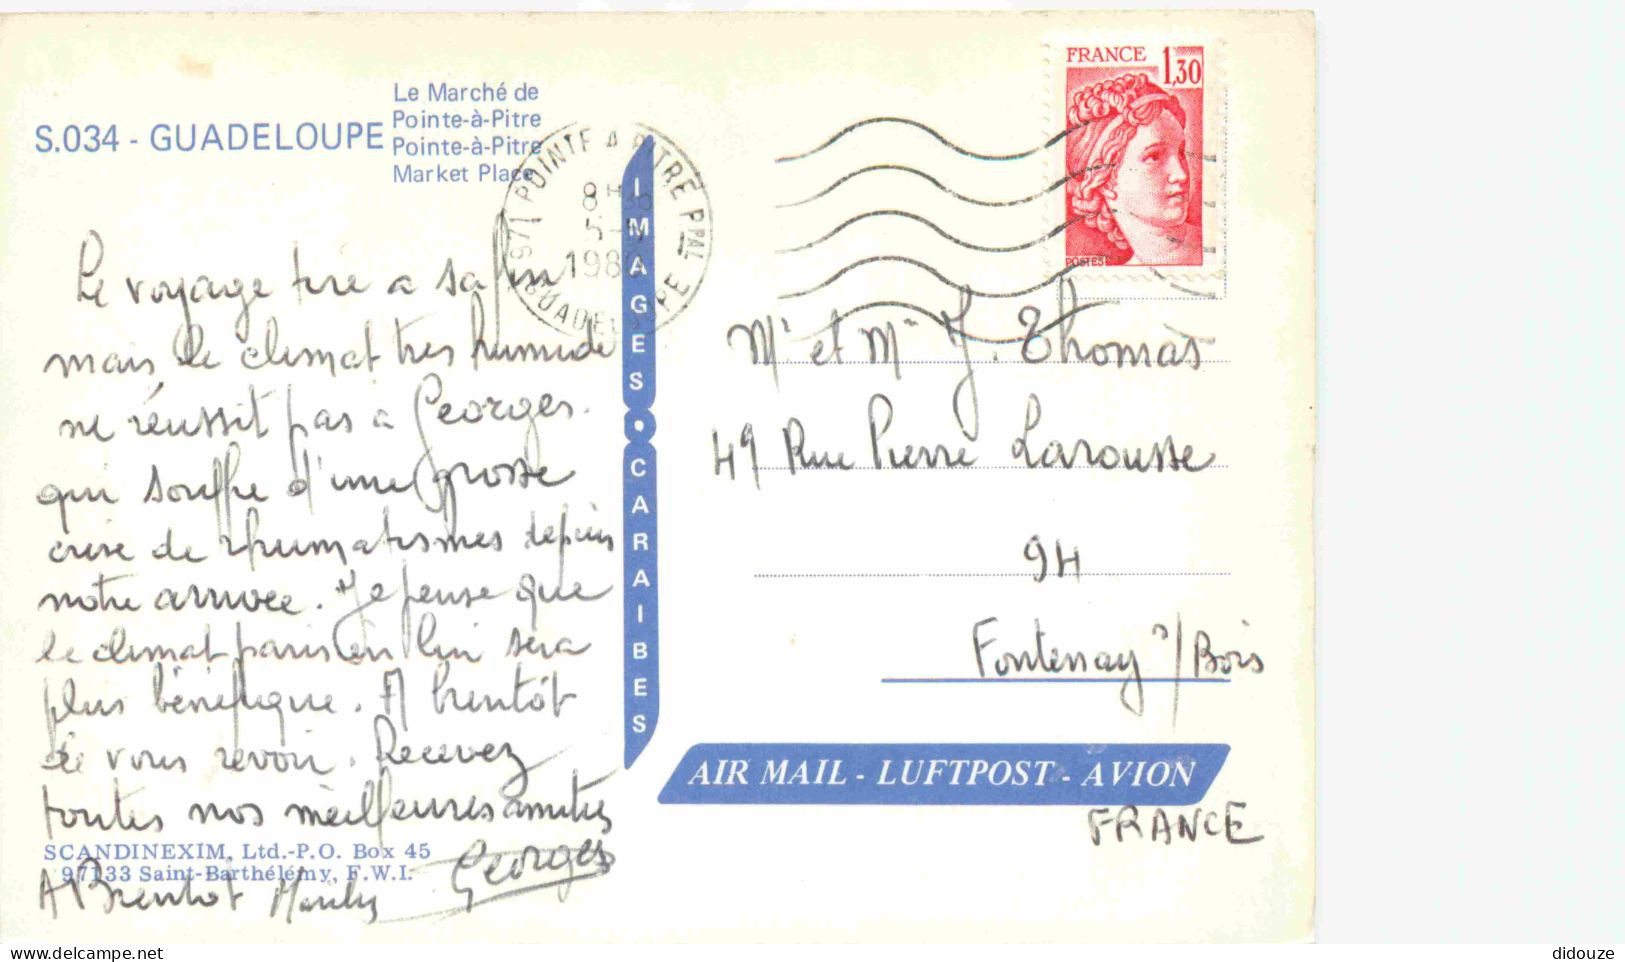 S.034 - GUADELOUPE
Le Marché de
Pointe-à-Pitre
Pointe-à-Pitre
Market Place
971 POINTE A PITRE PPAL
8H
5-
1980
GUADELOUPE
FRANCE 1,30
POSTES
IMAGES • CARAIBES
Le voyage tire a sa fin
mais le climat tres humide
ne réussit pas à Georges.
qui souffre d'une grosse
crise de rhumatismes depuis
notre arrivée. Je pense que
le climat parisien lui sera
plus bénéfique. A bientôt
de vous revoir. Recevez
toutes nos meilleures amitiés
Georges
A Bientot
SCANDINEXIM, Ltd.-P.O. Box 45
97133 Saint-Barthélémy, F.W.I.
Mr et Me J. Thomas
49 Rue Pierre Larousse
94
Fontenay s/Bois
AIR MAIL - LUFTPOST - AVION
FRANCE
didouze